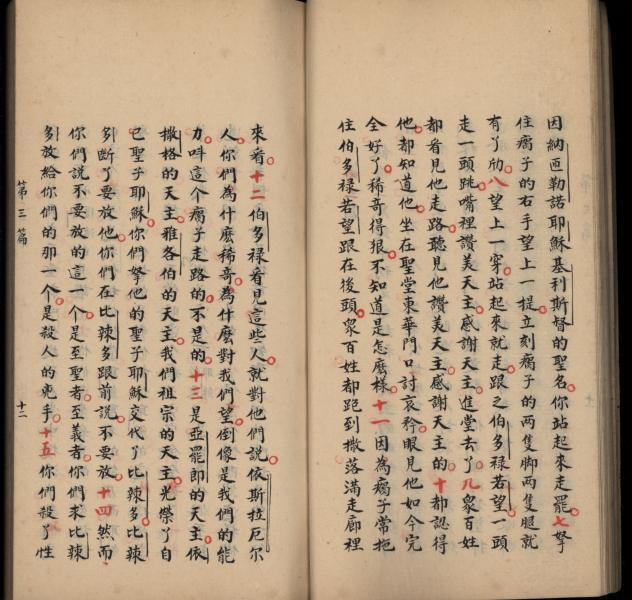 因納匝勒諾耶穌基利斯督的聖名你站起來走罷七拏
住瘸子的右手望上一提立刻瘸子的兩隻脚兩隻腿就
有了劤八望上一穿站起來就走跟之伯多祿若望一頭
走一頭跳嘴裡讚美天主感謝天主進堂去了九衆百姓
都看見他走路聽見他讚美天主感謝天主的十都認得
他都知道他坐在聖堂東華門口討哀矜眼見他如今完
全好了稀奇得狠不知道是怎麼樣十一因為瘸子常拖
住伯多祿若望跟在後頭衆百姓都跑到撒落滿走廊裡
來看十二伯多祿看見這些人就對他們說依斯拉厄尔
人你們為什麼稀奇為什麼對我們望倒像是我們的能
力呌這个瘸子走路的不是的十三是亞罷郎的天主依
撒格的天主雅各伯的天主我們祖宗的天主光榮了自
己聖子耶穌你們拏他的聖子耶穌交代了比辣多比辣
多斷了要放他你們在比辣多跟前說不要放十四然而
你們說不要放的這一个是至聖者至義者你們求比辣
多放給你們的那一个是殺人的兇手十五你們殺了性
第三篇
十二